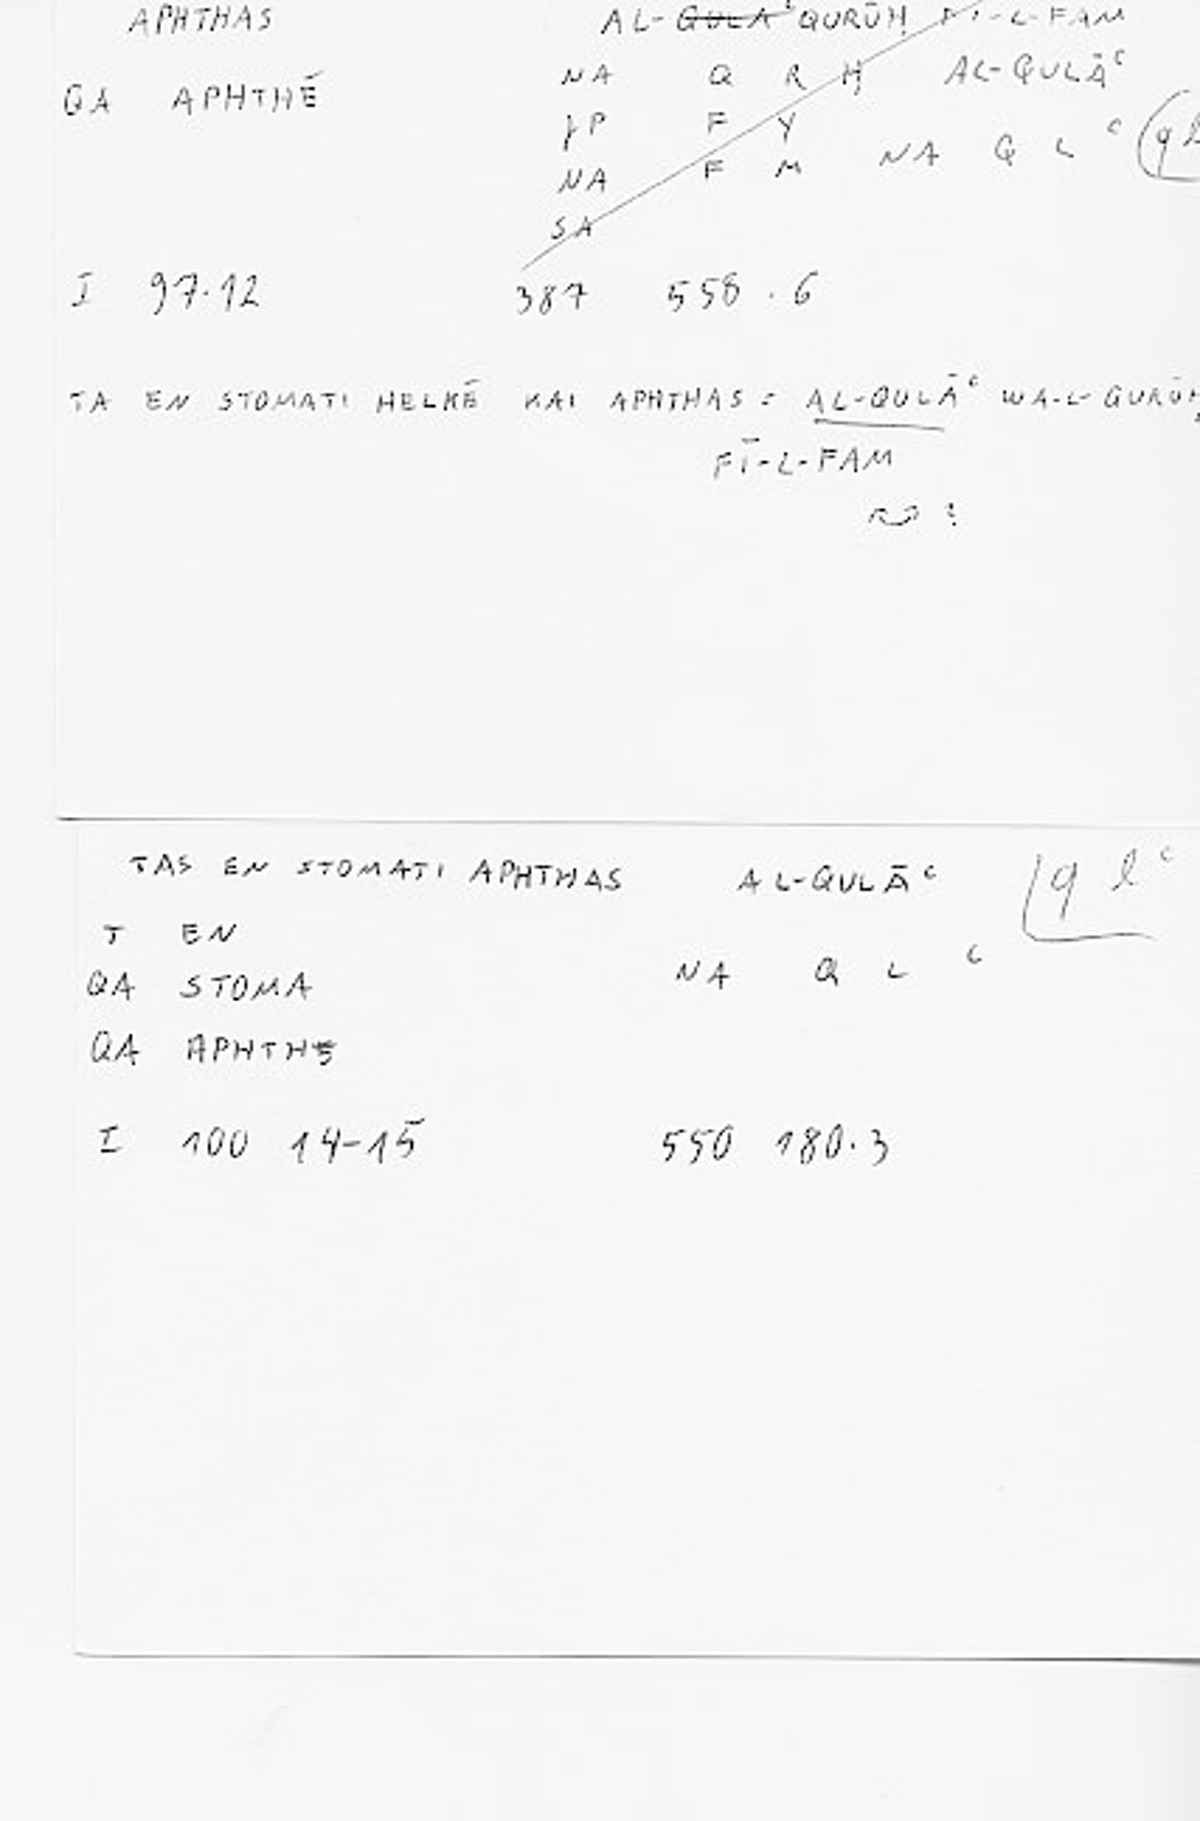 APHTHAS AL-QULĀʿ QURŪḤ FĪ-L-FAM
QA APHTHĒ NA Q R Ḥ AL-QULĀʿ
F Y NA Q L ʿ
NA F M
SA
I 97.12 387 558.6
TA EN STOMATI HELKĒ KAI APHTHAS = AL-QULĀʿ WA-L-QURŪḤ
FĪ-L-FAM
TAS EN STOMATI APHTHAS AL-QULĀʿ q l ʿ
T EN
NA Q L ʿ
QA STOMA
QA APHTHĒ
I 100 14-15 550 180.3